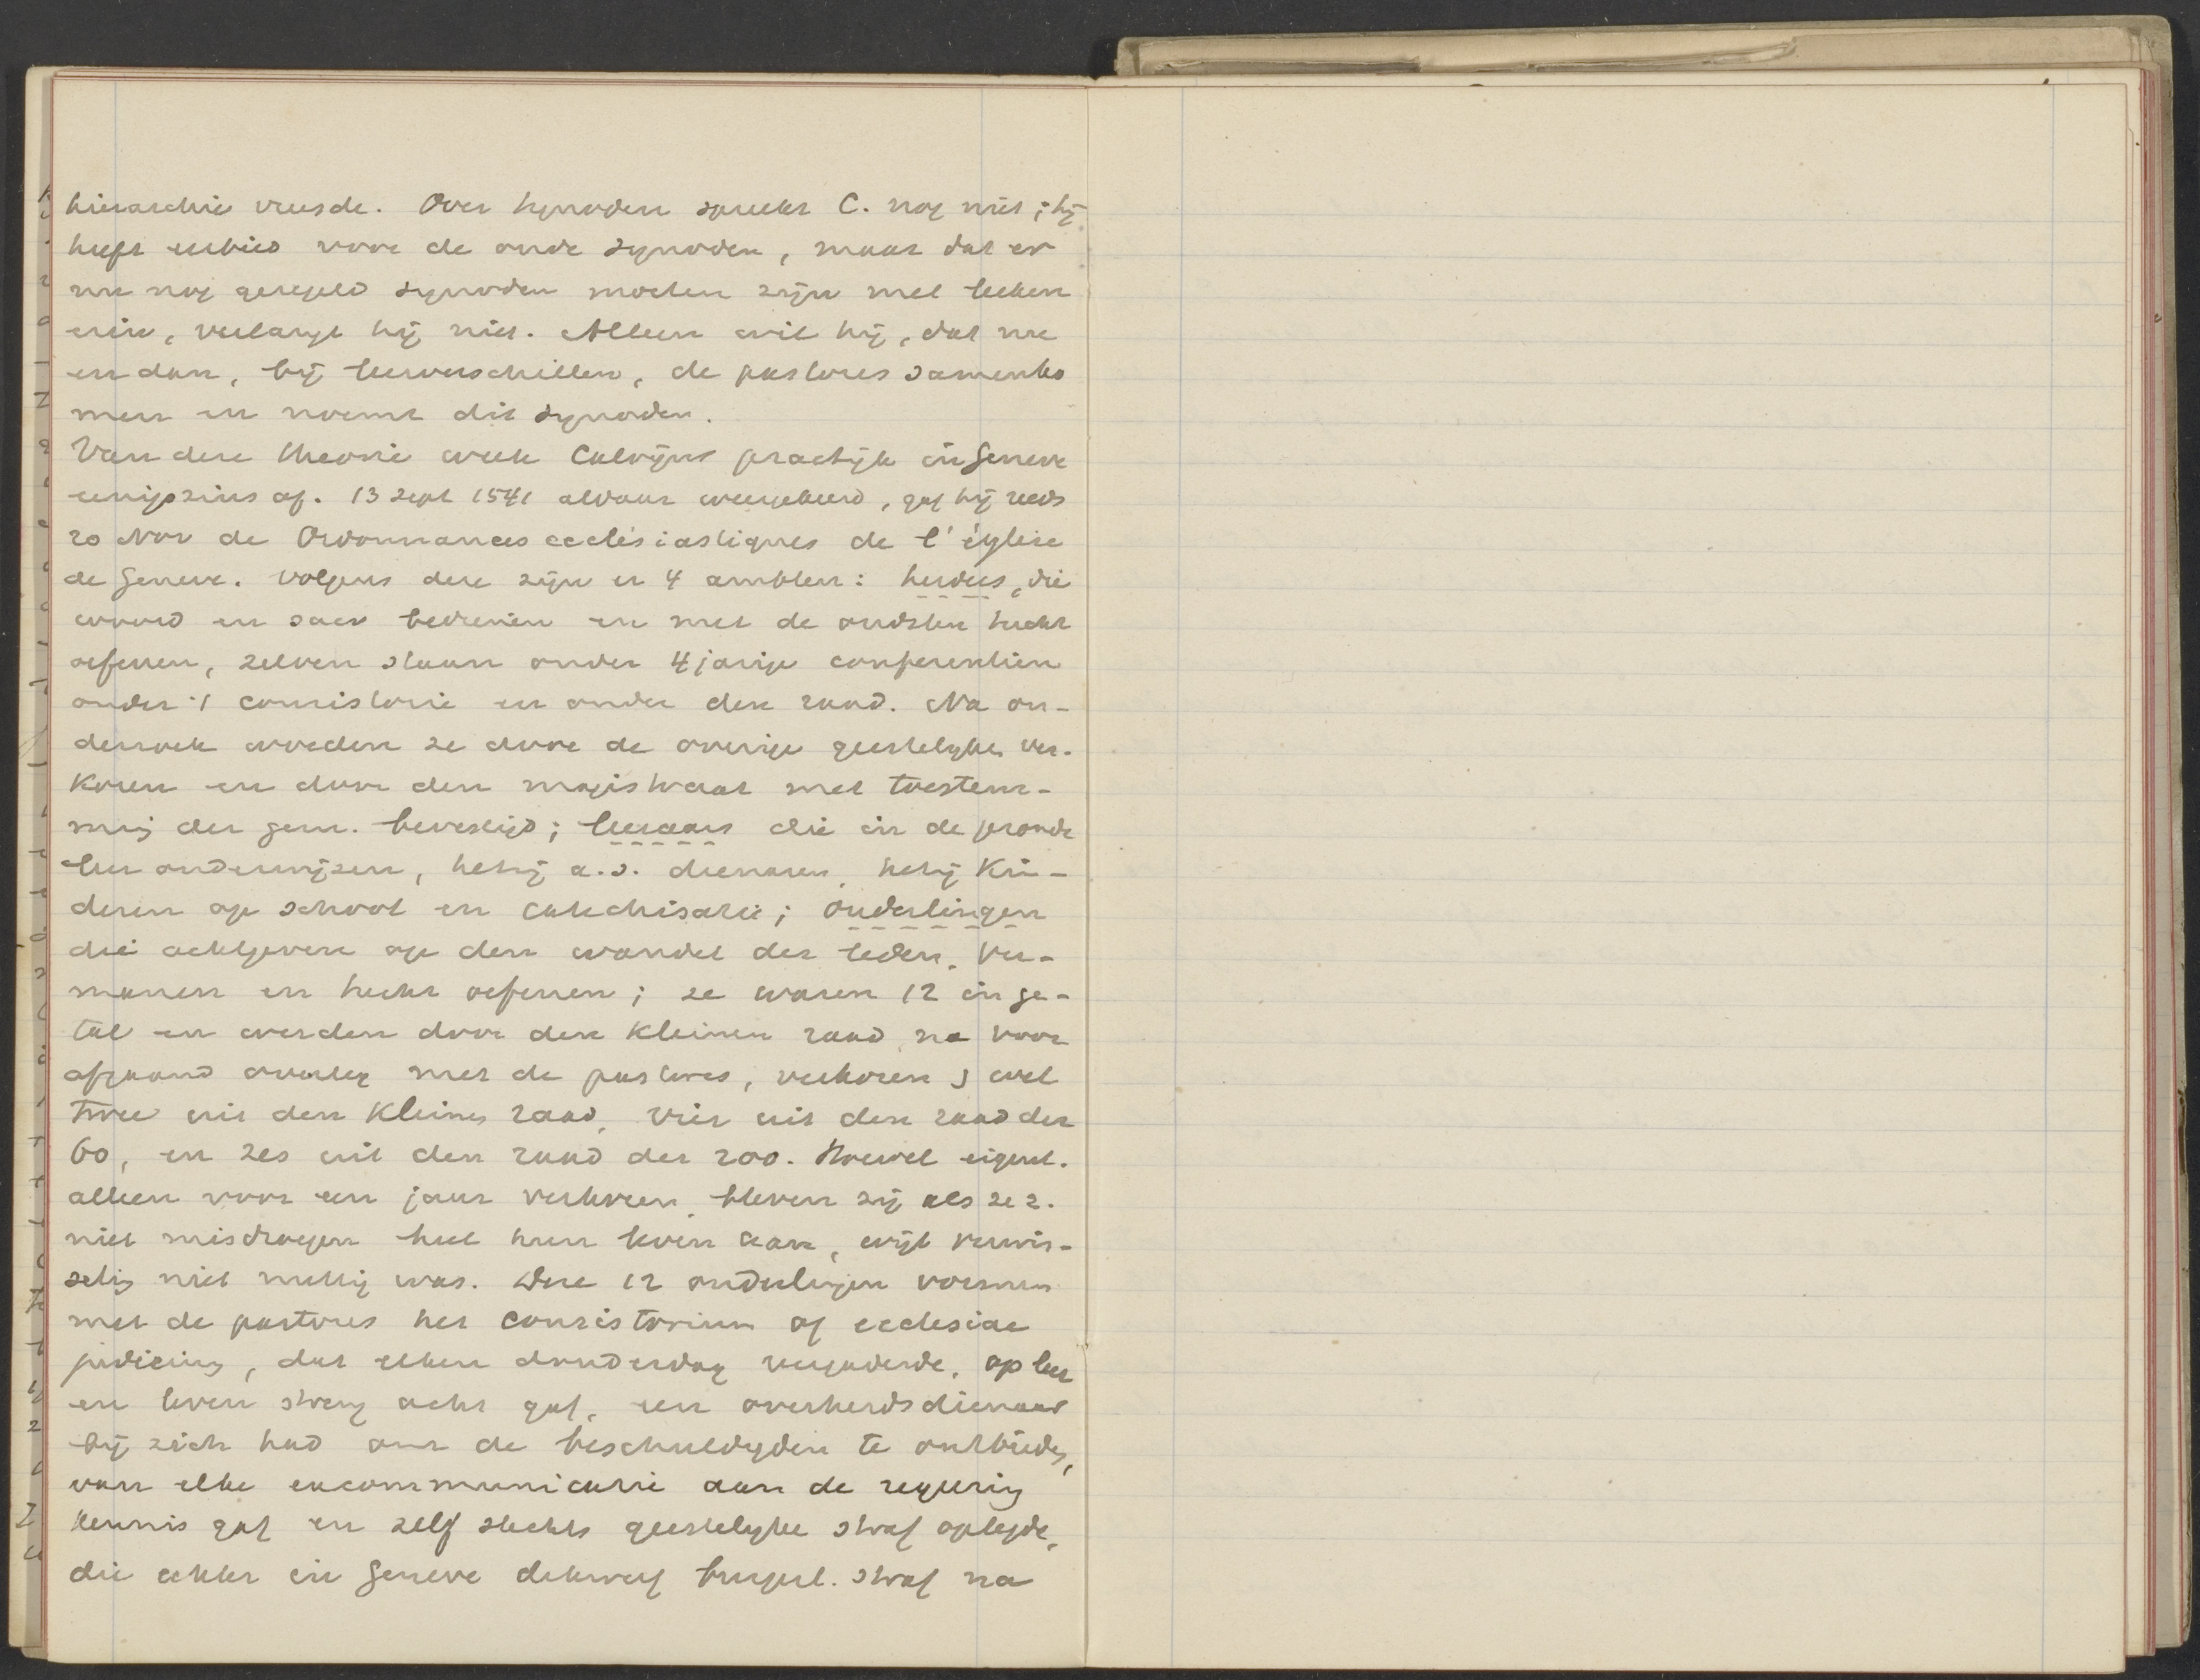 hierarchie vreesde. Over synoden spreekt C. nog niet; hij
heeft eerbied voor de oude synoden, maar dat er
nu nog geregeld synoden moeten zijn met leeken
erin, verlangt hij niet. Alleen wil hij, dat nu
en dan, bij leerverschillen, de pastores samenko
men en noemt dit synoden.
Van deze theorie week Calvijns practijk in Geneve
eenigszins af. 13 Sept 1541 aldaar weergekeerd, gaf hij reeds
20 Nov de Ordonnances ecclésiastiques de l'église
de Geneve. Volgens deze zijn er 4 ambten: herders, die
woord en sacr bedienen en met de oudsten tucht
oefenen, zelven staan onder 4 jarige conferentien
onder 't consistorie en onder den raad. Na on-
derzoek worden ze door de overige geestelijken ver-
koren en door den magistraat met toestem-
ming der gem. bevestigd; leeraars die in de gezonde
leer onderwijzen, hetzij a.s. dienaren, hetzij kin-
deren op school en catechisatie; ouderlingen
die achtgeven op den wandel der leden, ver-
manen en tucht oefenen; ze waren 12 in ge-
tal en werden door den kleinen raad, na voor
afgaand overleg met de pastores, verkoren; wel
twee uit den kleinen raad, vier uit den raad der
60, en zes uit den raad der 200. Hoewel eigenl.
alleen voor een jaar verkoren, bleven zij als ze z.
niet misdroegen heel hun leven aan, wijl verwis-
seling niet nuttig was. Deze 12 ouderlingen vormen
met de pastores het consistorium of ecclesiae
judicium, dat elken donderdag vergaderde, op leer
en leven streng acht gaf, een overheidsdienaar
bij zich had om de beschuldigden te ontbieden,
van elke excommunicatie aan de regering
kennis gaf en zelf slechts geestelijke straf oplegde,
die echter in Geneve dikwerf burgerl. straf na